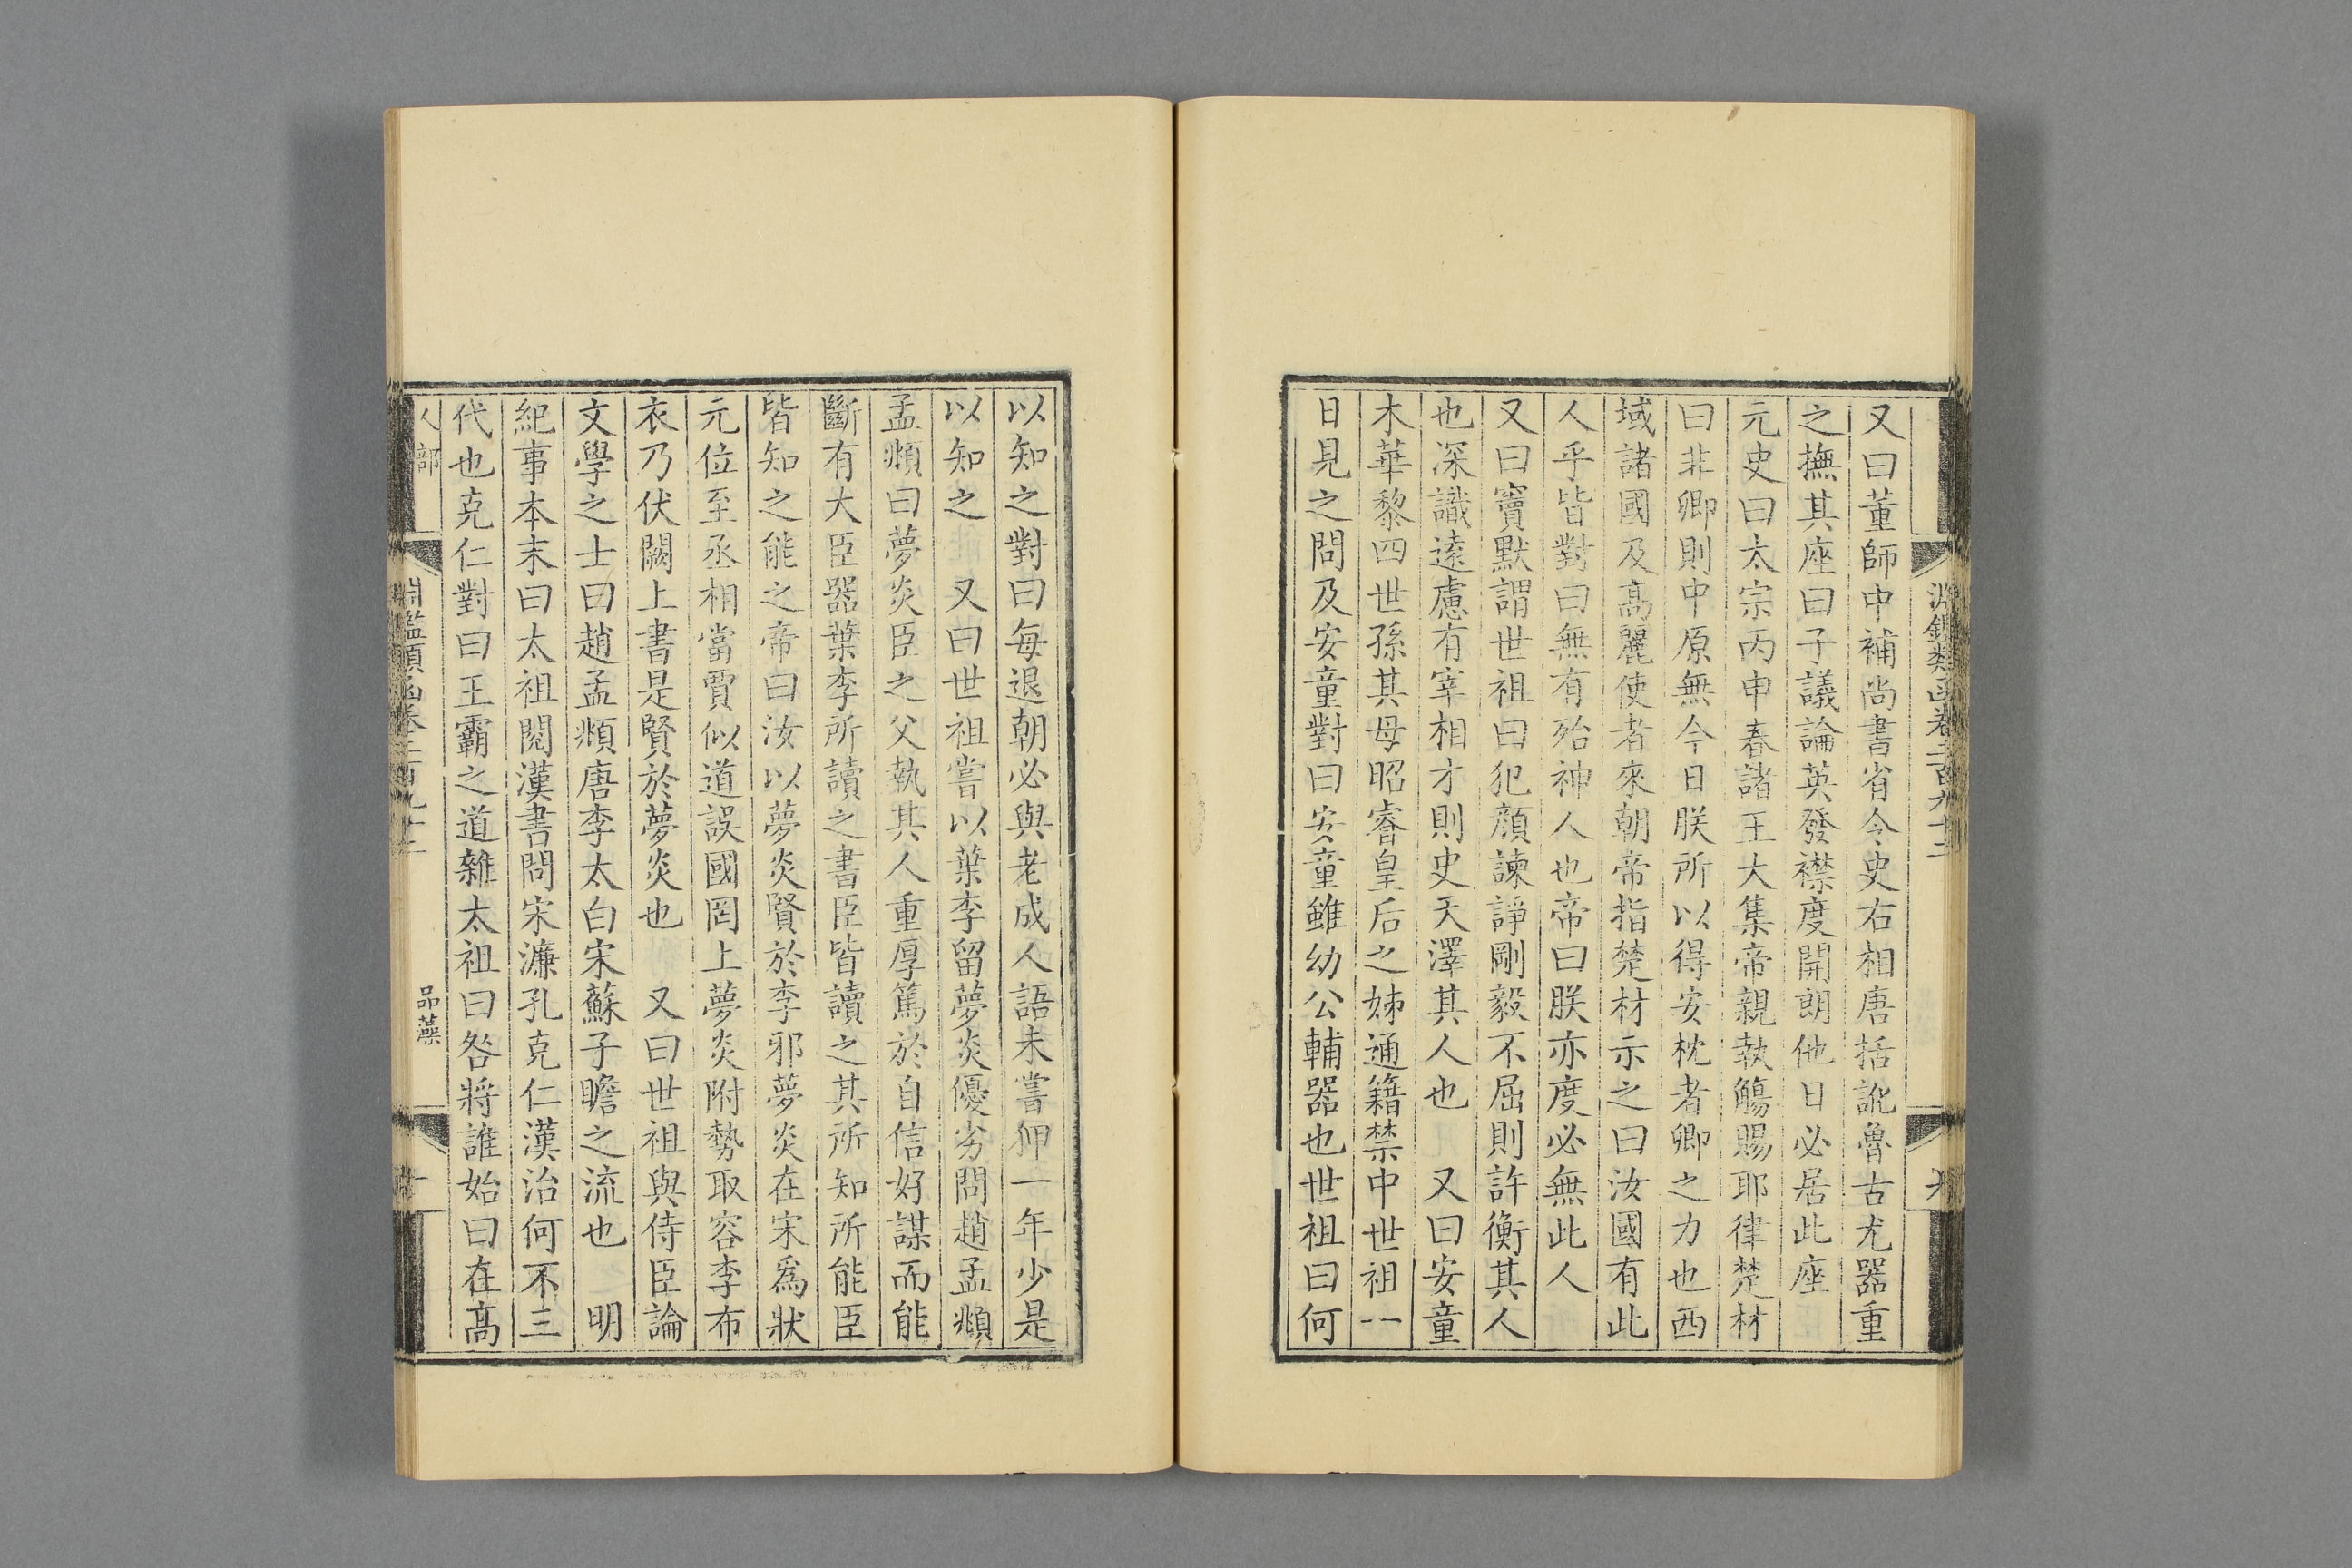 淵鑑類函卷二百九十二
又曰董師中補尚書省令史右相唐括訛魯古尤器重
之撫其座曰子議論英發襟度開朗他日必居此座
元史曰太宗丙申春諸王大集帝親執觴賜耶律楚材
曰非卿則中原無今日朕所以得安枕者卿之力也西
域諸國及髙麗使者來朝帝指楚材示之曰汝國有此
人乎皆對曰無有殆神人也帝曰朕亦度必無此人
又曰竇默謂世祖曰犯顔諫諍剛毅不屈則許衡其人
也深識遠慮有宰相才則史天澤其人也 又曰安童
木華黎四世孫其母昭睿皇后之姊通籍禁中世祖一
日見之問及安童對曰安童雖幼公輔器也世祖曰何
以知之對曰每退朝必與老成人語未嘗狎一年少是
以知之 又曰世祖嘗以葉李留夢炎優劣問趙孟頫
孟頫曰夢炎臣之父執其人重厚篤於自信好謀而能
斷有大臣器葉李所讀之書臣皆讀之其所知所能臣
皆知之能之帝曰汝以夢炎賢於李邪夢炎在宋爲狀
元位至丞相當賈似道誤國罔上夢炎附勢取容李布
衣乃伏闕上書是賢於夢炎也 又曰世祖與侍臣論
文學之士曰趙孟頫唐李太白宋蘇子瞻之流也 明
紀事本末曰太祖閱漢書問宋濂孔克仁漢治何不三
代也克仁對曰王霸之道雜太祖曰咎將誰始曰在髙
人部
淵鑑類函卷二百九十二
品藻